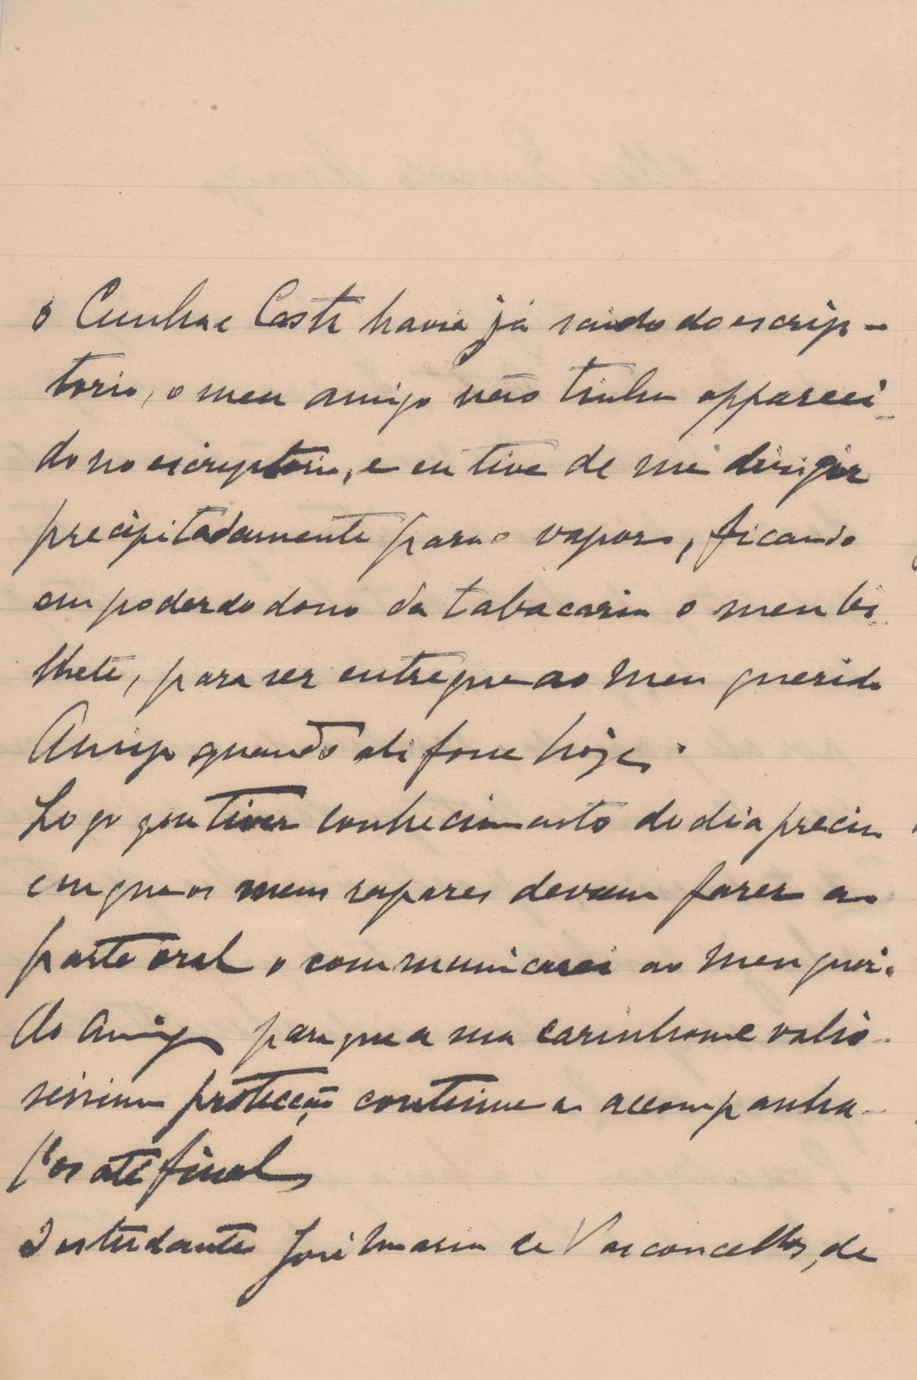 o Cunha e Costa havia já saido do escrip-
torio, o meu amigo não tinha appareci-
do no escriptorio, e eu tive de me dirigir
precipitadamente para o vapor, ficando
em poder do dono da tabacaria o meu bi-
lhete, para ser entregue ao meu querido
Amigo quando ali fosse hoje.
Logo que tiver conhecimento do dia preciso
em que os meus rapazes devam fazer a
parte oral o communicarei ao meu queri-
do amigo para que a sua carinhosa e valio-
sissima protecção continue a acompanha-
l'os até final,
O estudante José Maria de Vasconcellos, de